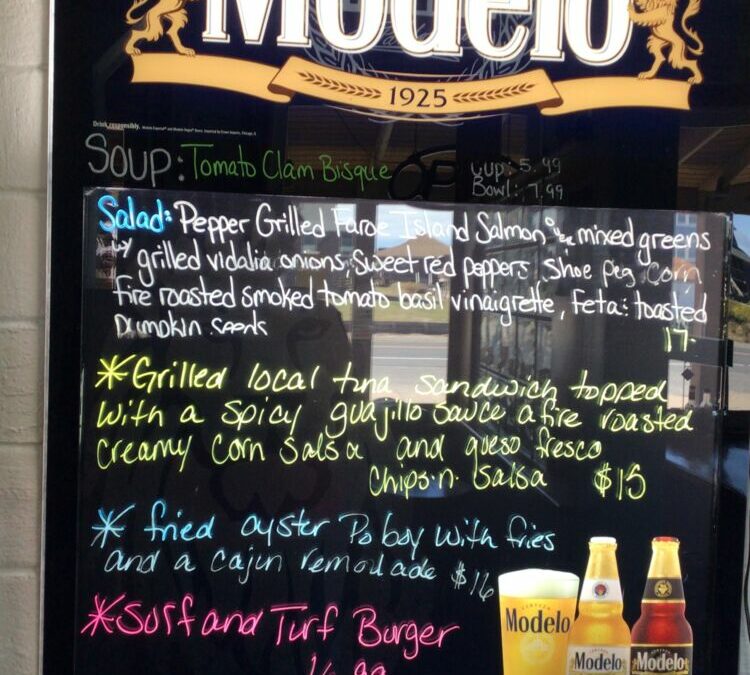 Modelo
1925
Drink responsibly.
SOUP: Tomato Clam Bisque
Cup: 5.99
Bowl: 7.99
Salad: Pepper Grilled Faroe Island Salmon over mixed greens
w/ grilled vidalia onions, sweet red peppers, shoe peg corn
fire roasted smoked tomato basil vinaigrette, feta: toasted
pumpkin seeds
17-
*Grilled local tuna sandwich topped
with a spicy guajillo sauce a fire roasted
creamy corn salsa and queso fresco
chips n. salsa $15
* fried oyster Po boy with fries
and a cajun remoulade $16
*Surf and Turf Burger
16.99
Modelo
Modelo
Modelo